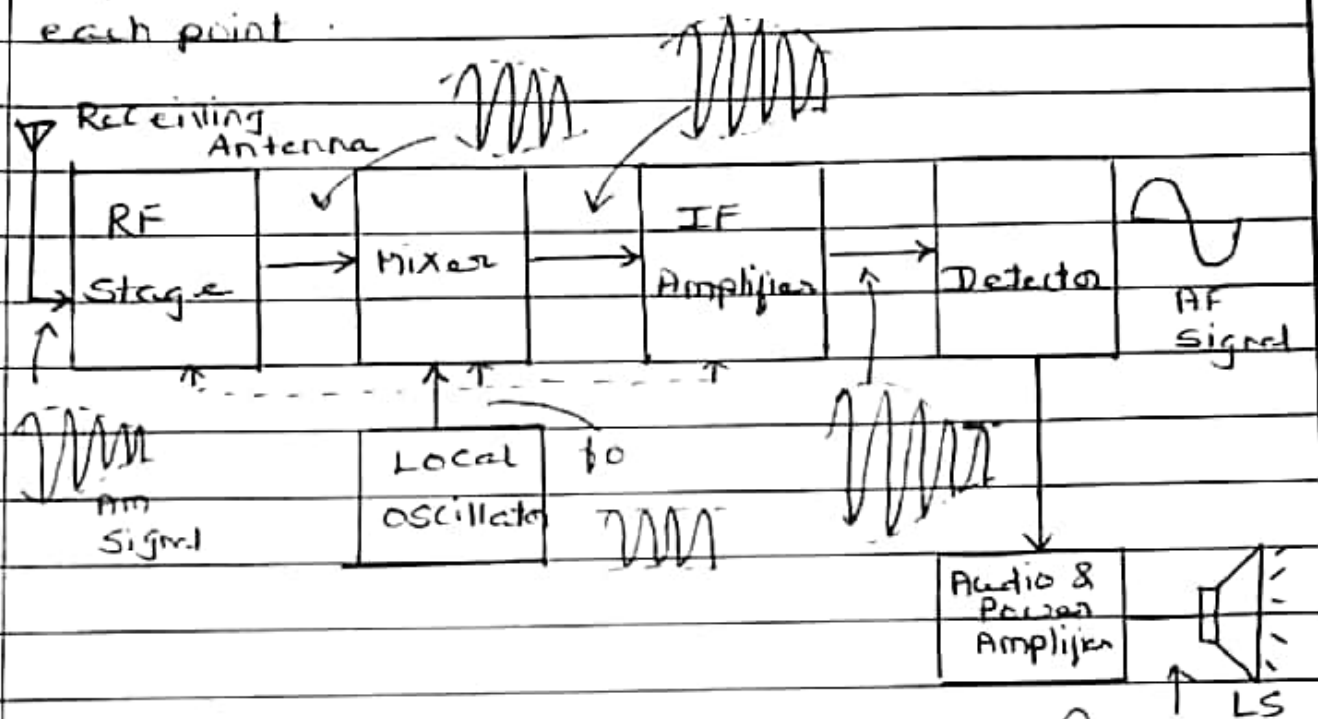 each point.
Receiving
Antenna
RF
Stage
Mixer
IF
Amplifier
Detector
AF
Signal
AM
Signal
Local
Oscillator
fo
Audio &
Power
Amplifier
LS